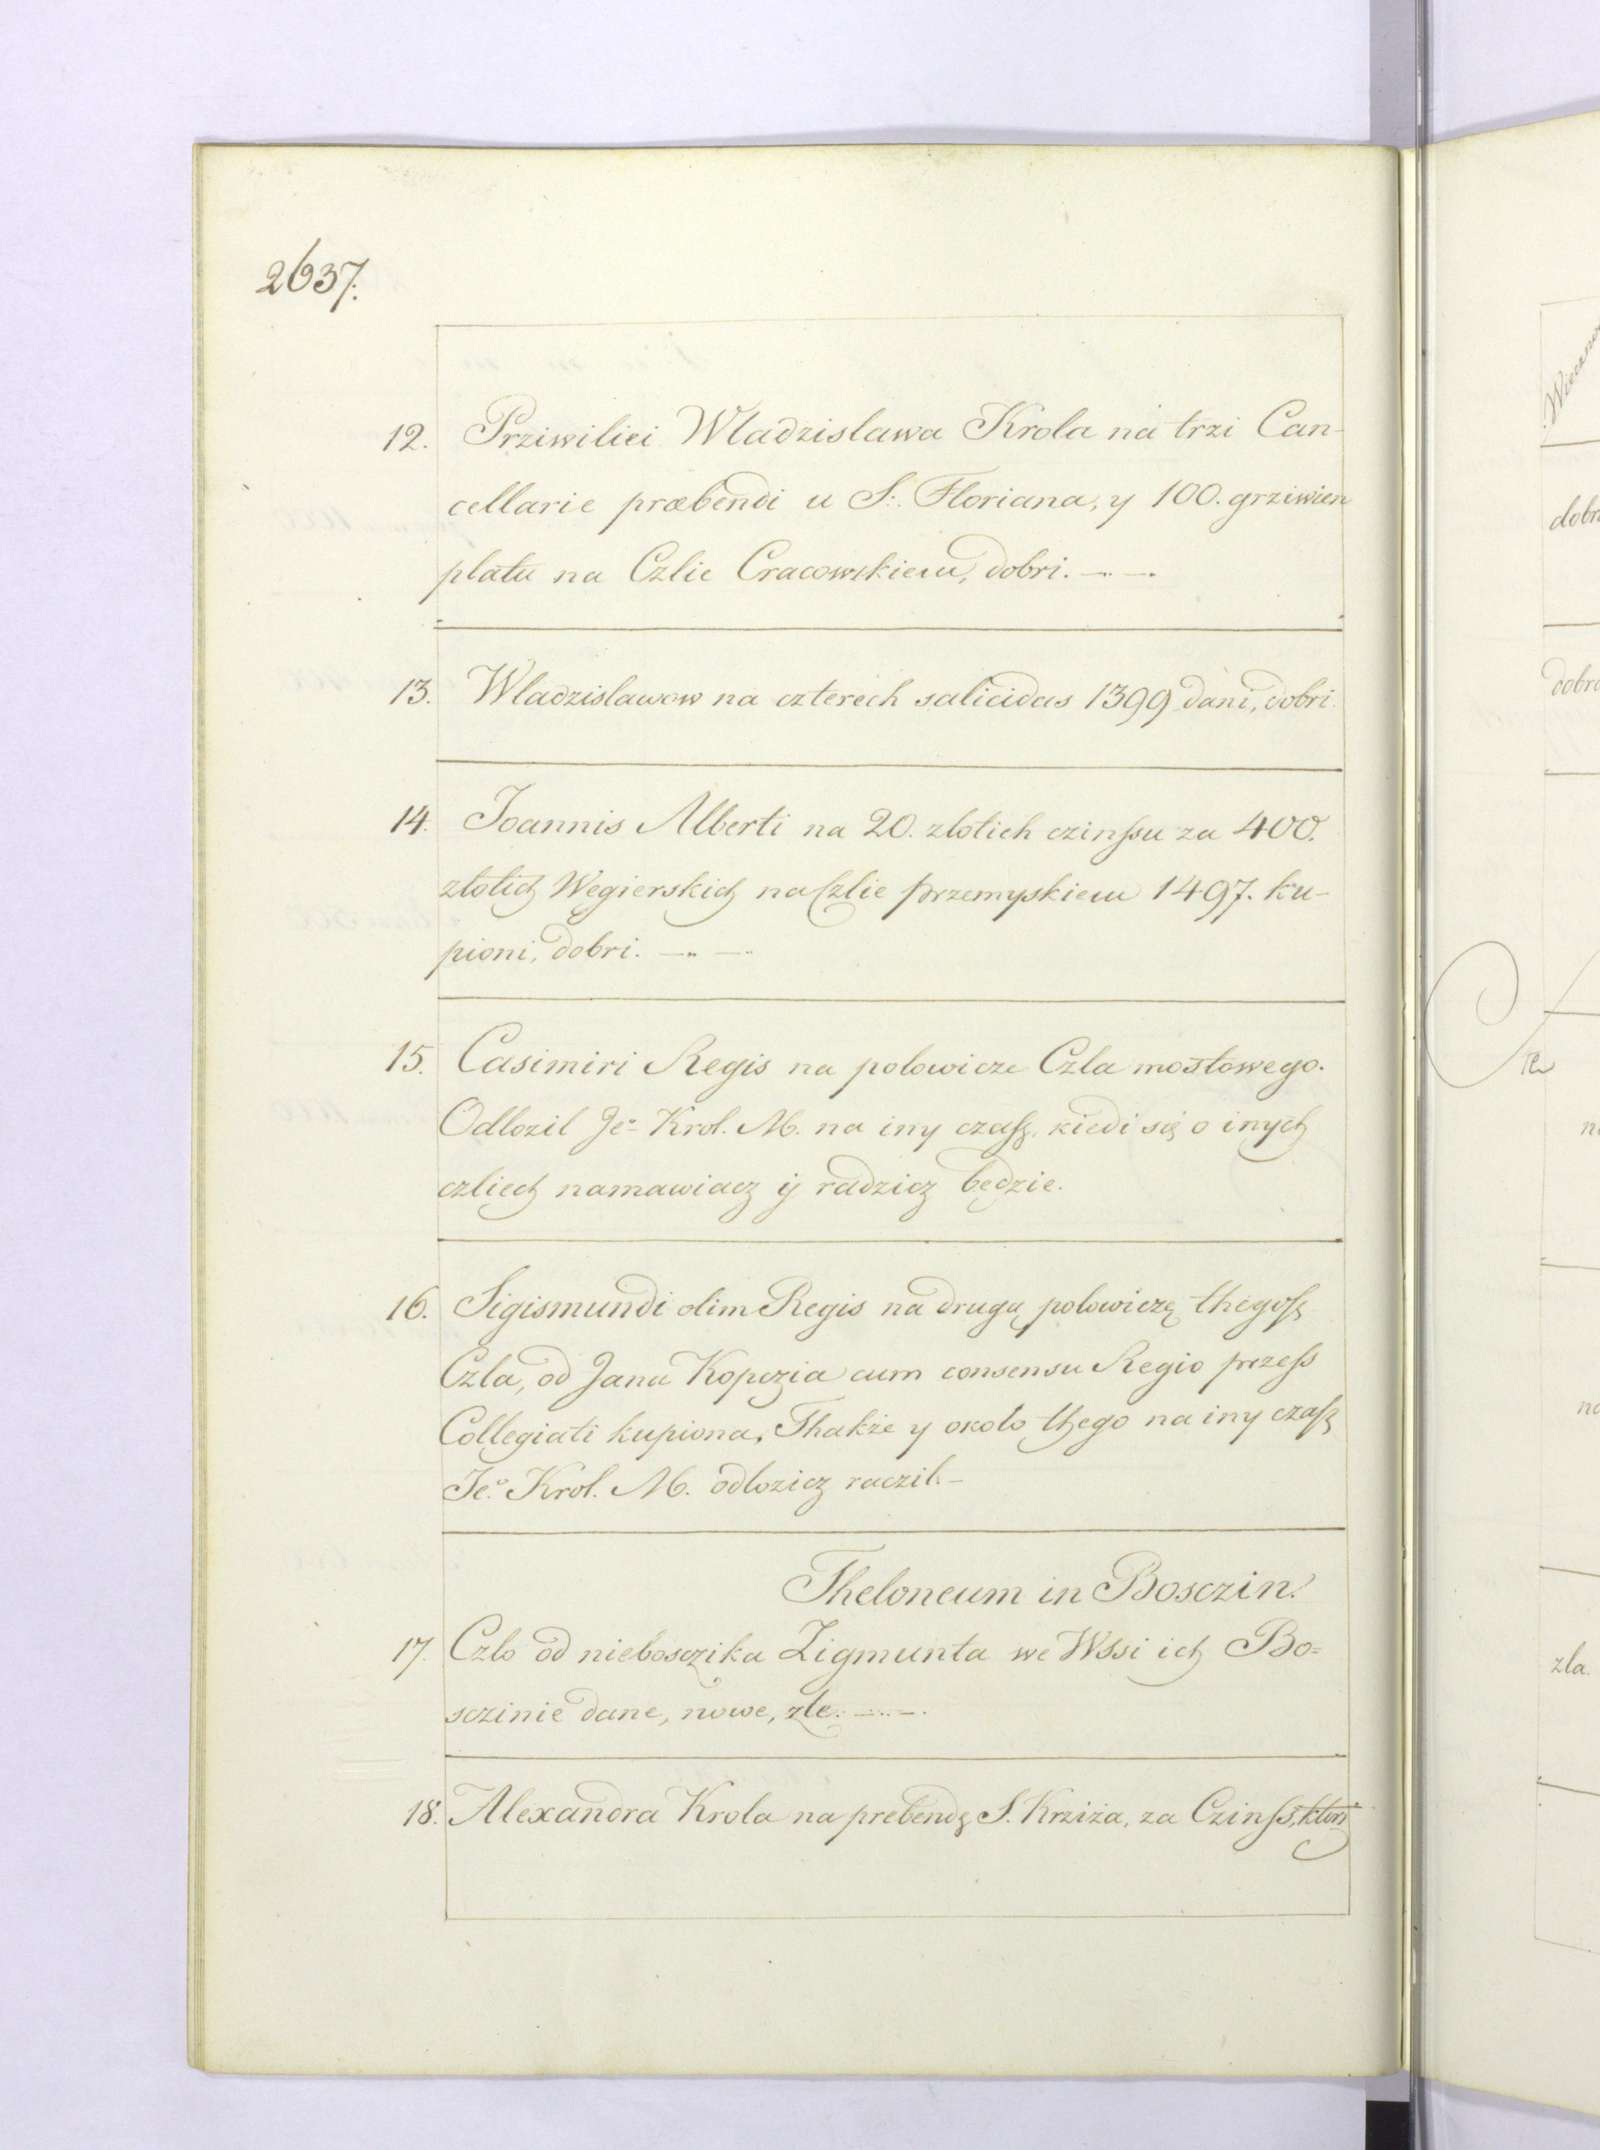 2637.
12. Prziwiliei Wladzislawa Krola na trzi Can-
cellarie præbendi u S. Floriana, y 100. grziwien
platu na Czlie Cracowskiem, dobri.
13. Wladzislawow na czterech salicidas 1399 dani, dobri.
14. Joannis Alberti na 20. zlotich czinssu za 400.
zlotich Wegierskich na Czlie przemyskiem 1497. ku-
pioni, dobri.
15. Casimiri Regis na polowicze Czla mostowego.
Odlozil Jeº Krol. M. na iny czasz, kiedi się o inych
czliech namawiacz ÿ radzicz będzie.
16. Sigismundi olim Regis na drugą polowiczę thegosz
Czla, od Jana Kopczia cum consensu Regio przess
Collegiati kupiona, Thakże y około thego na iny czasz
Jeº Krol. M. odlozicz raczil.
Theloneum in Bosczin.
17. Czlo od nieboszczika Zigmunta we Wssi ich Bo=
sczinie dane, nowe, zle.
18. Alexandra Krola na prebendę S. Krziża, za Czinss, ktori
dobr
dobra
zla.